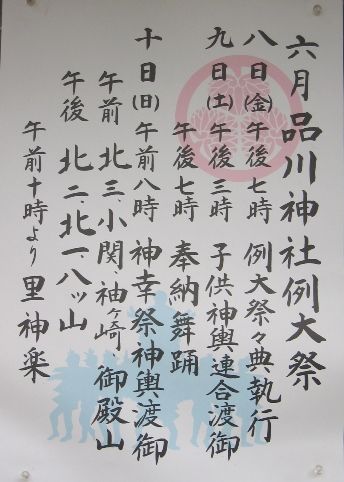 六月 品川神社例大祭
八日(金) 午後七時 例大祭々典執行
九日(土) 午後三時 子供神輿連合渡御
午後七時 奉納舞踊
十日(日) 午前八時 神幸祭神輿渡御
午前 北三、小関、袖ヶ崎 御殿山
午後 北二、北一、八ッ山
午前十時より 里神楽